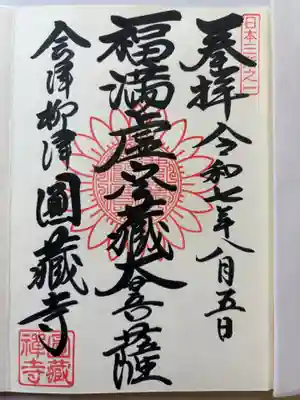 日本三所之一
奉拝 令和七年八月五日
福満虚空藏大菩薩
会津柳津 圓藏寺
圓藏禅寺